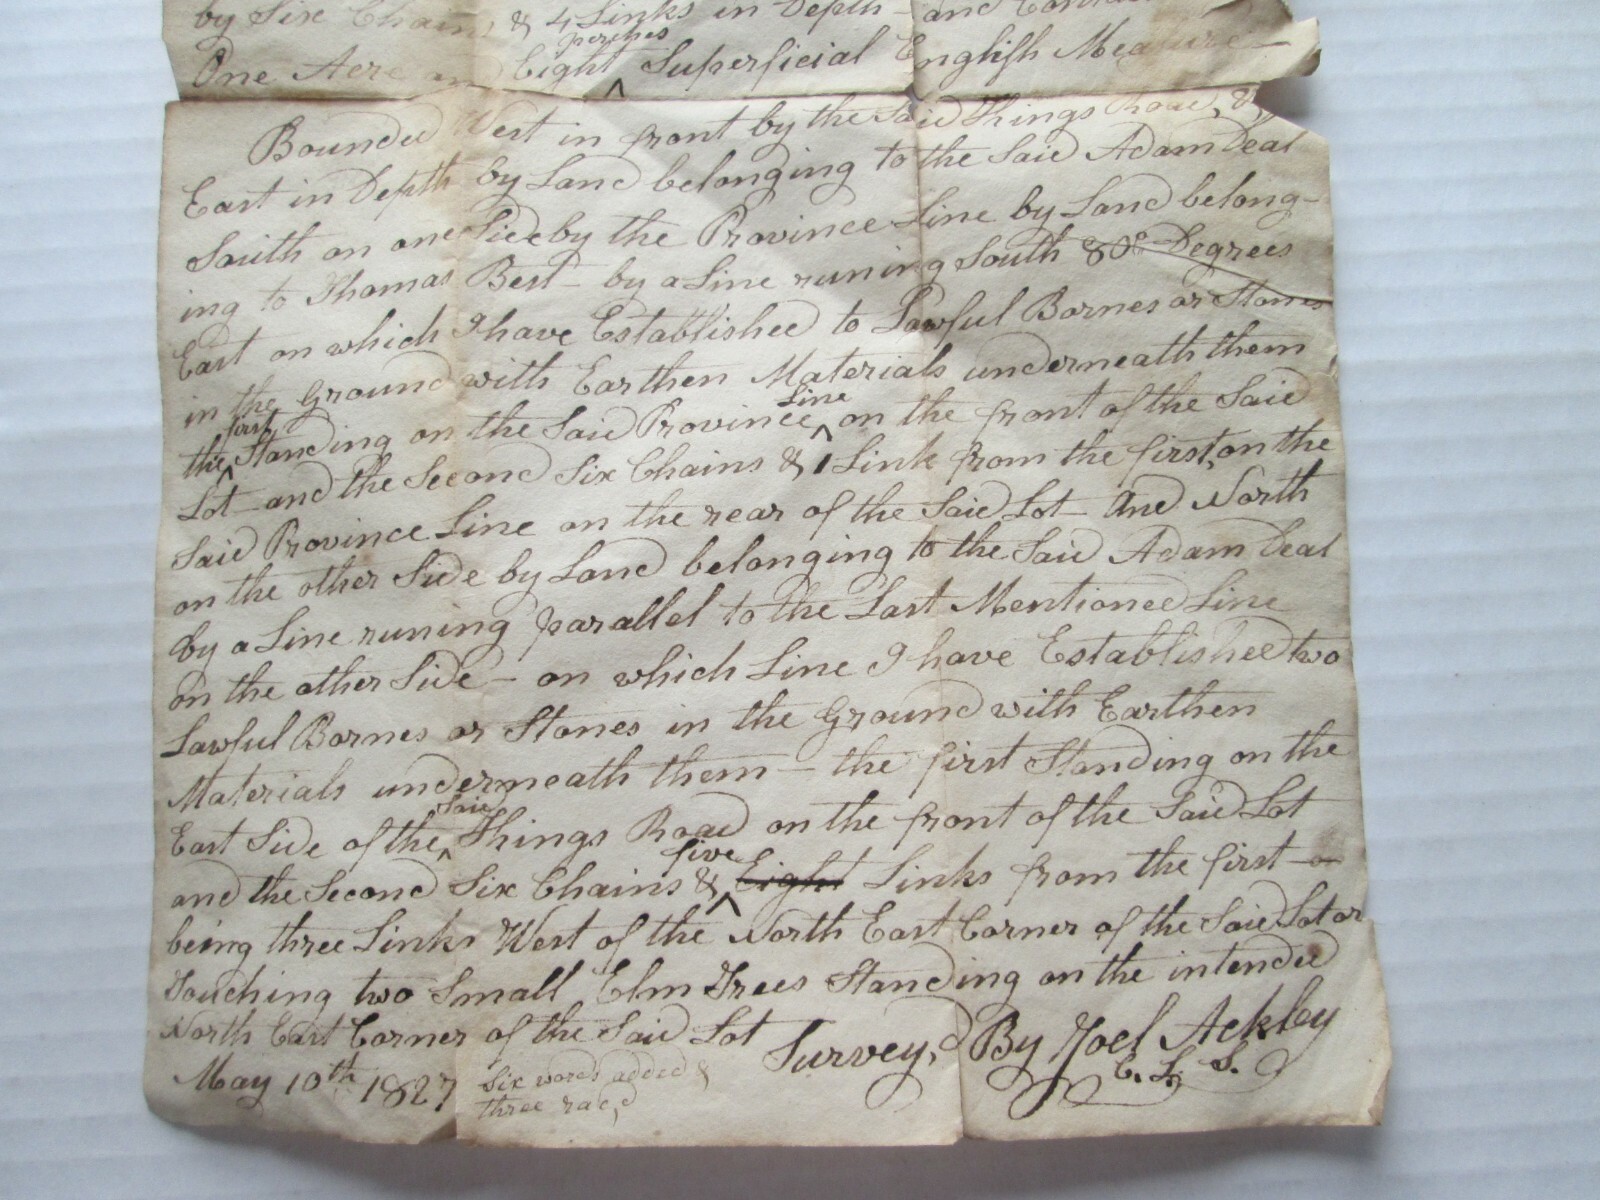 by Six Chains & 4 Links in Depth - and
One Acre and Eight ^ perches Superficial English Measure -
Bounded West in front by the Said Things Road, &
East in Depth by Land belonging to the Said Adam Deal
South on one Side by the Province Line by Land belong-
ing to Thomas Best - by a Line runing South 80° Degrees
East on which I have Established to Lawful Bornes or Stones
in the Ground with Earthen Materials underneath them
the ^ first Standing on the Said Province ^ Line on the front of the Said
Lot - and the Second Six Chains & 1 Link from the first, on the
Said Province Line on the rear of the Said Lot - And North
on the other Side by Land belonging to the Said Adam Deal
by a Line runing parallel to the Last Mentioned Line
on the other Side - on which Line I have Established two
Lawful Bornes or Stones in the Ground with Earthen
Materials underneath them - the first Standing on the
East Side of the ^ Said Things Road on the front of the Said Lot
and the Second Six Chains & ^ five Eight Links from the first -
being three Links West of the North East Corner of the Said Lot or
Touching two Small Elm Trees Standing on the intended
North East Corner of the Said Lot Survey,d By Joel Ackley
E. L. S.
May 10th 1827 Six words added &
three rac,d